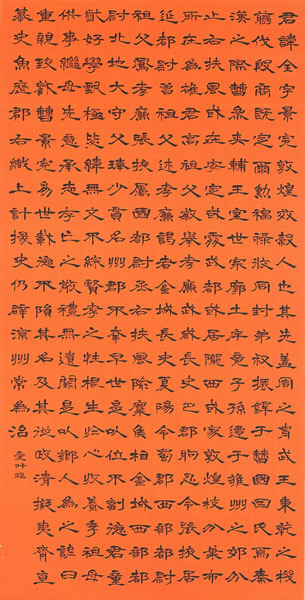 君諱全字景完敦煌效穀人也其先蓋周之胄武王秉乾之機
翦伐殷商既定爾勳福祿攸同封弟叔振鐸于曹國因氏焉秦
漢之際曹參夾輔王室世宗廓土斥竟子孫遷于雍州之郊分
止右扶風或在安定或處武都或居隴西或家敦煌枝分葉布
所在為雄君高祖父敏舉孝廉武威長史巴郡朐忍令張掖居
延都尉曾祖父述孝廉謁者金城長史夏陽令蜀郡西部都尉
祖父鳳孝廉張掖屬國都尉丞右扶風隃麋侯相金城西部都
尉北地大守父琫少貫名州郡不幸早世是以位不副德君童
齔好學甄極毖緯無文不綜賢孝之性根生於心收養季祖母
供事繼母先意承志存亡之敬禮無遺闕是以鄉人為之諺曰
重親致歡曹景完易世載德不隕其名及其從政清擬夷齊直
慕史魚歷郡右職上計掾史仍辟涼州常為治